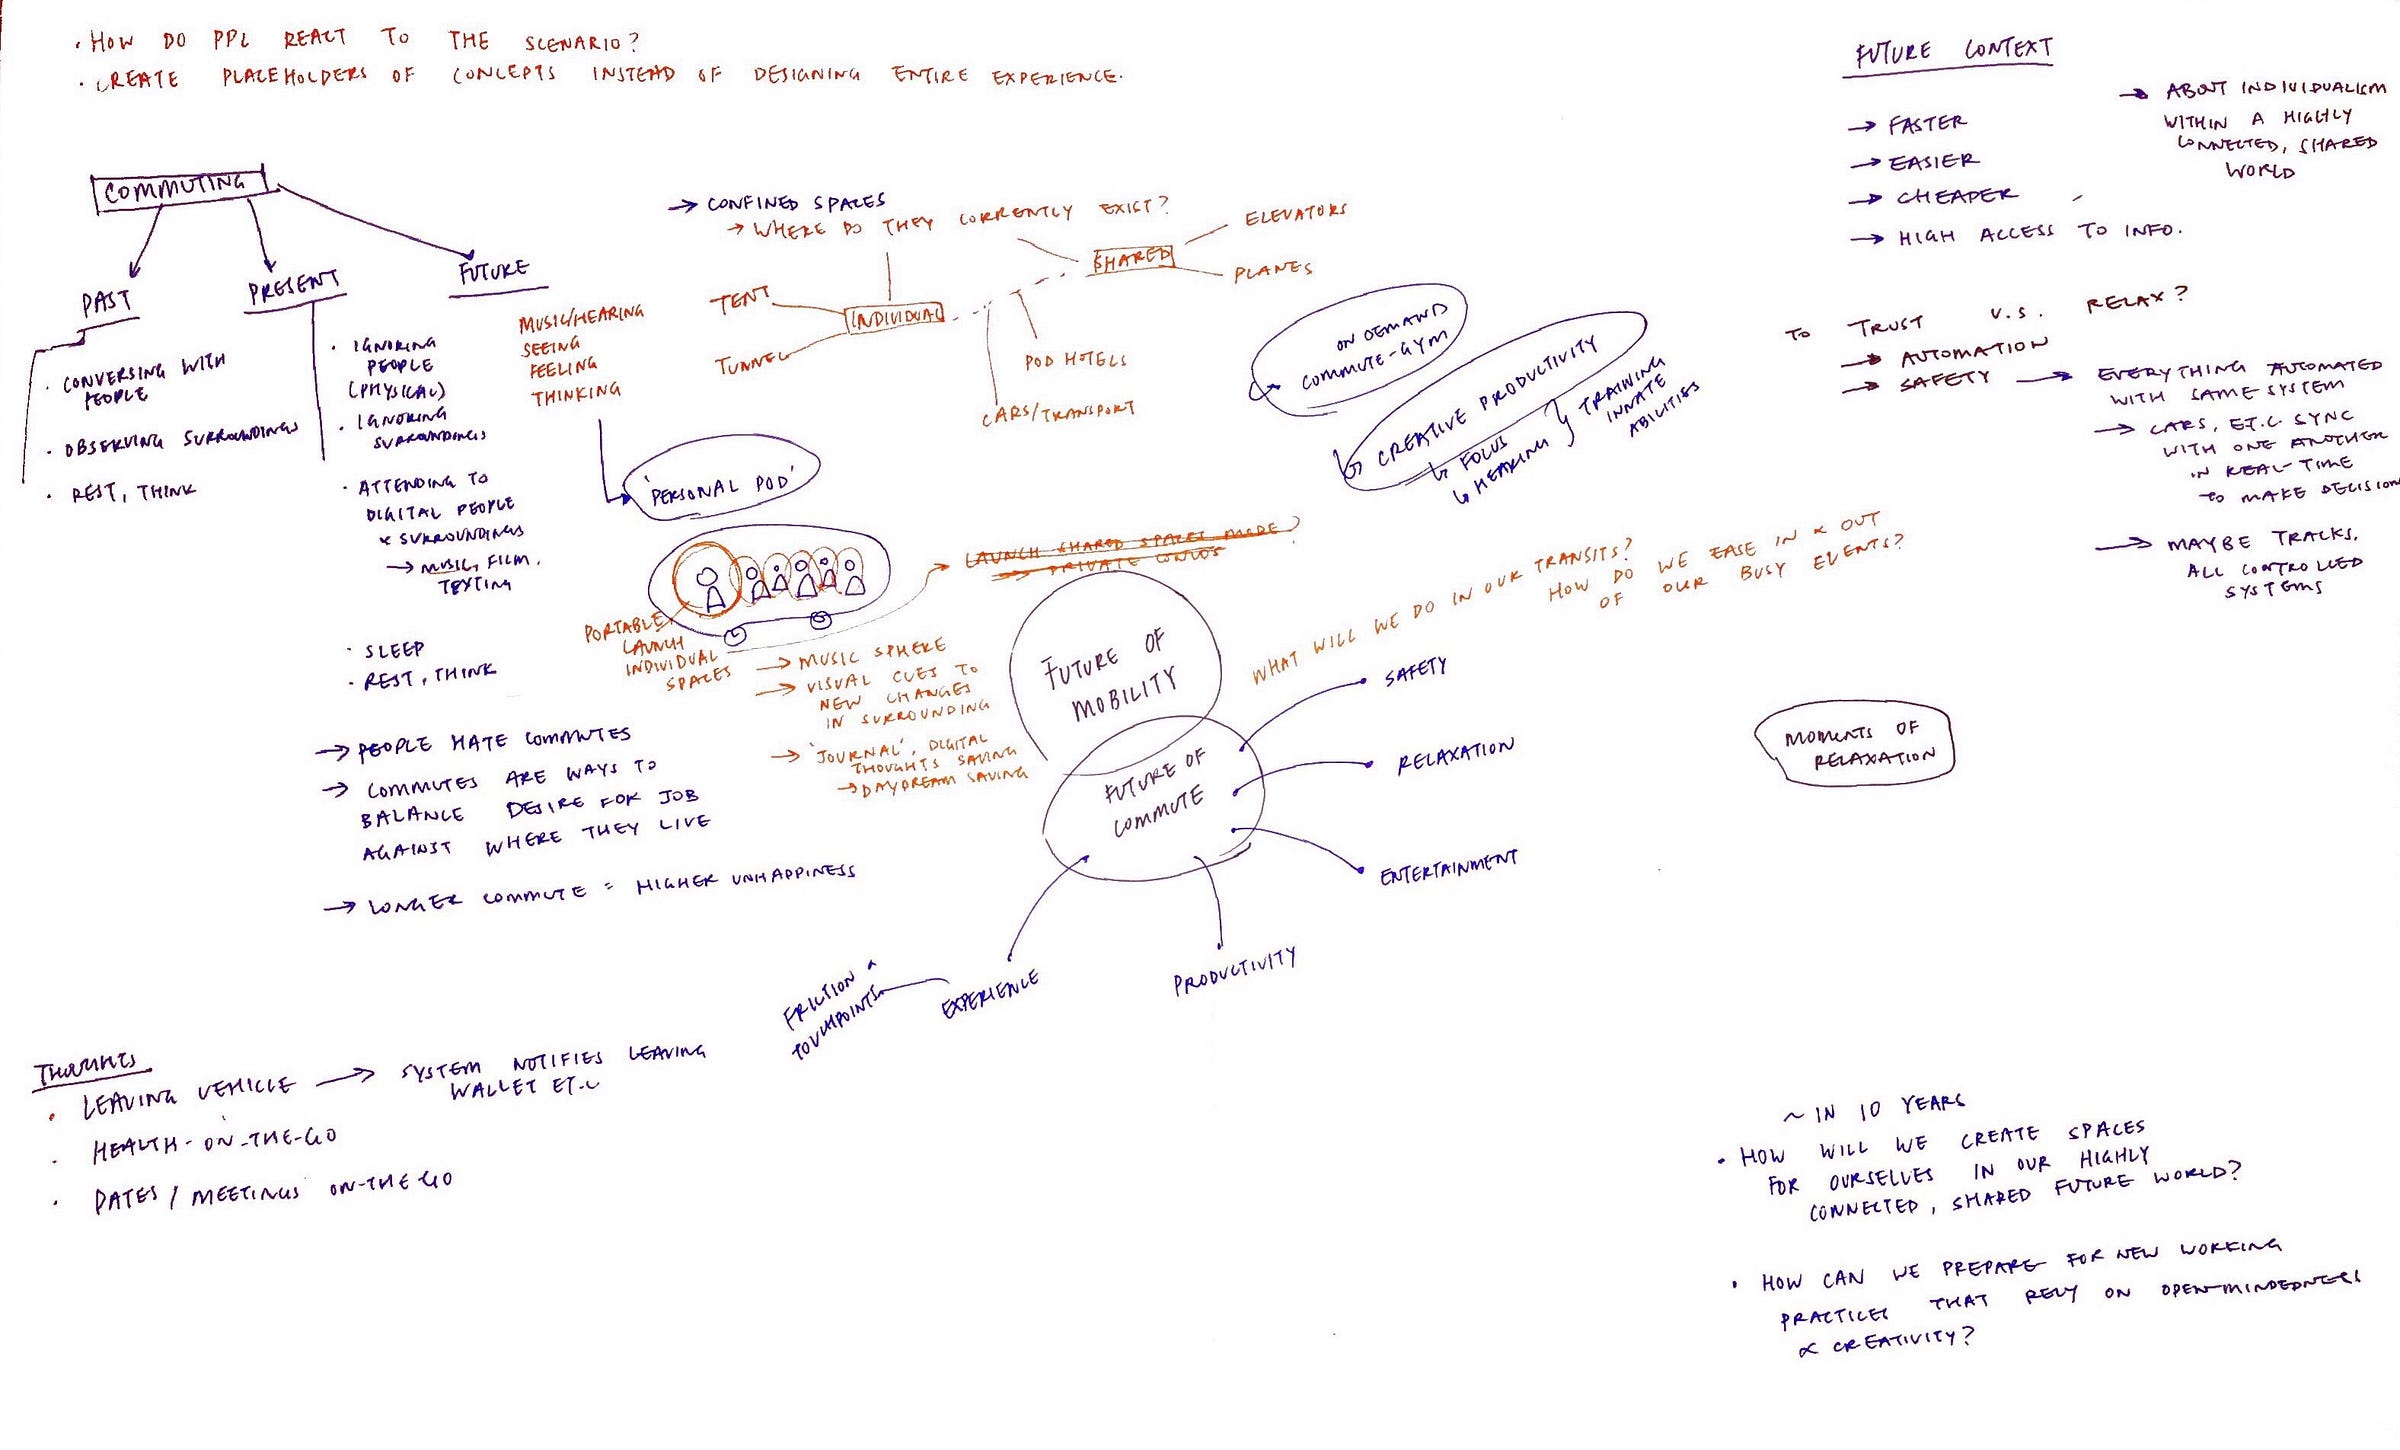 · HOW DO PPL REACT TO THE SCENARIO?
· CREATE PLACEHOLDERS OF CONCEPTS INSTEAD OF DESIGNING ENTIRE EXPERIENCE.
COMMUTING
PAST
· CONVERSING WITH
PEOPLE
· OBSERVING SURROUNDINGS
· REST, THINK
PRESENT
· IGNORING
PEOPLE
(PHYSICAL)
· IGNORING
SURROUNDINGS
· ATTENDING TO
DIGITAL PEOPLE
& SURROUNDINGS
→ MUSIC, FILM,
TEXTING
· SLEEP
· REST, THINK
FUTURE
MUSIC/HEARING
SEEING
FEELING
THINKING
'PERSONAL POD'
→ CONFINED SPACES
→ WHERE DO THEY CURRENTLY EXIST?
INDIVIDUAL
TENT
TUNNEL
SHARED
ELEVATORS
PLANES
POD HOTELS
CARS/TRANSPORT
PORTABLE
LAUNCH
INDIVIDUAL
SPACES
→ LAUNCH SHARED SPACES MADE
→ PRIVATE
?
→ MUSIC SPHERE
→ VISUAL CUES TO
NEW CHANGES
IN SURROUNDING
→ 'JOURNAL', DIGITAL
THOUGHTS SAVING
→ DAYDREAM SAVING
→ PEOPLE HATE COMMUTES
→ COMMUTES ARE WAYS TO
BALANCE DESIRE FOR JOB
AGAINST WHERE THEY LIVE
→ LONGER COMMUTE = HIGHER UNHAPPINESS
ON DEMAND
COMMUTE-GYM
CREATIVE PRODUCTIVITY
↳ FOCUS
↳ HEARING
} TRAINING
INNATE
ABILITIES
WHAT WILL WE DO IN OUR TRANSITS?
HOW DO WE EASE IN & OUT
OF OUR BUSY EVENTS?
FUTURE OF
MOBILITY
FUTURE OF
COMMUTE
SAFETY
RELAXATION
ENTERTAINMENT
PRODUCTIVITY
EXPERIENCE
FRICTION &
TOUCHPOINTS
MOMENTS OF
RELAXATION
FUTURE CONTEXT
→ FASTER
→ EASIER
→ CHEAPER
→ HIGH ACCESS TO INFO.
→ ABOUT INDIVIDUALISM
WITHIN A HIGHLY
CONNECTED, SHARED
WORLD
TO TRUST V.S. RELAX?
→ AUTOMATION
→ SAFETY
→ EVERYTHING AUTOMATED
WITH SAME SYSTEM
→ CARS, ET.C SYNC
WITH ONE ANOTHER
IN REAL-TIME
TO MAKE DECISION
→ MAYBE TRACKS,
ALL CONTROLLED
SYSTEMS
THOUGHTS
· LEAVING VEHICLE → SYSTEM NOTIFIES LEAVING
WALLET ET.C
· HEALTH-ON-THE-GO
· DATES / MEETINGS ON-THE-GO
~ IN 10 YEARS
· HOW WILL WE CREATE SPACES
FOR OURSELVES IN OUR HIGHLY
CONNECTED, SHARED FUTURE WORLD?
· HOW CAN WE PREPARE FOR NEW WORKING
PRACTICES THAT RELY ON OPEN-MINDEDNESS
& CREATIVITY?